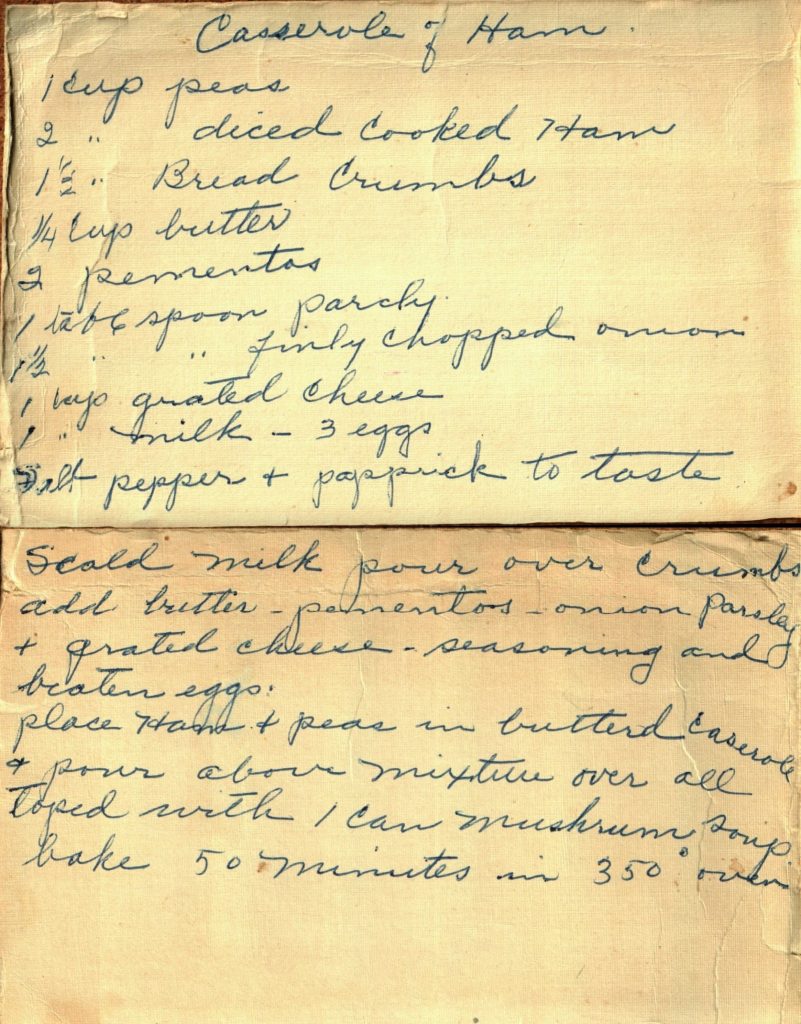 Casserole of Ham.
1 Cup peas
2 " diced Cooked Ham
1 1/2 " Bread Crumbs
1/4 Cup butter
2 pementos
1 table spoon parcly
1 1/2 " " finly chopped onion
1 cup grated cheese
1 " milk - 3 eggs
Salt pepper + papprick to taste
Scald milk pour over crumbs
add butter - pementos - onion Parsley
+ grated cheese - seasoning and
beaten eggs.
place Ham + peas in butterd Caserole
+ pour above mixture over all
toped with 1 can mushrum soup
bake 50 minutes in 350° oven